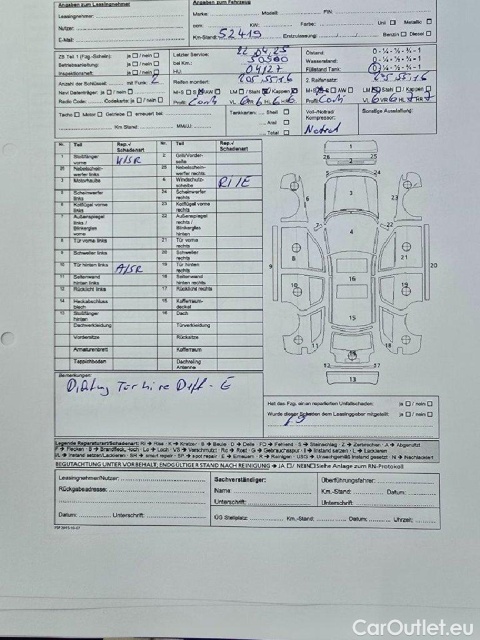 Angaben zum Leasingnehmer
Angaben zum Fahrzeug
Leasingnehmer:
Marke: Modell: FIN:
Nutzer:
ccm: KW: Farbe: Uni Metallic
E-Mail:
Km-Stand: 52419 Erstzulassung: Benzin Diesel
ZB Teil 1 (Fzg.-Schein): ja / nein
Letzter Service: 22.04.25
Ölstand: 0 - ¼ - ½ - ¾ - 1
Betriebsanleitung: ja / nein
bei Km.: 50500
Wasserstand: 0 - ¼ - ½ - ¾ - 1
Inspektionsheft: ja / nein
HU: 04/27
Füllstand Tank: 0 - ¼ - ½ - ¾ - 1
Anzahl der Schlüssel: mit Funk: 2
Reifen montiert: 205.55.16
2. Reifensatz: 205.55.16
Navi Datenträger: ja / nein
M+S S AW LM Stahl Kappen
M+S S AW LM Stahl Kappen
Radio Code: Codekarte: ja / nein
Profil: Conti VL 6 VR 6 HL 6 HR 6
Profil: Conti
Tacho Motor Getriebe erneuert bei
Tankkarten: Shell
Voll-/Notrad
Kompressor:
Notrad
Sonstige Ausstattung:
Aral
Km Stand: MM/JJ
Esso
Nr. Teil Rep./Schadenart Nr. Teil Rep./Schadenart
1 Stoßfänger vorne K/SR 2 Grill/Vorderseite
25 Nebelscheinwerfer links 26 Nebelscheinwerfer rechts
3 Motorhaube 4 Windschutzscheibe RI/E
5 Scheinwerfer links 24 Scheinwerfer rechts
6 Kotflügel vorne links 23 Kotflügel vorne rechts
7 Außenspiegel links / Blinkerglas hinten 22 Außenspiegel rechts / Blinkerglas hinten
8 Tür vorne links 21 Tür vorne rechts
9 Schweller links 20 Schweller rechts
10 Tür hinten links A/SR 19 Tür hinten rechts
11 Seitenwand hinten links 18 Seitenwand hinten rechts
12 Rücklicht links 17 Rücklicht rechts
14 Heckabschlussblech 15 Kofferraumdeckel
13 Stoßfänger hinten 16 Dach
Dachverkleidung Türverkleidung
Vordersitze Rücksitze
Armaturenbrett Kofferraum
Teppichboden Dachreling Antenne
Bemerkungen:
Dichtung Tür hire Def. - E
Hat das Fzg. einen reparierten Unfallschaden: ja / nein
Wurde dieser Schaden dem Leasinggeber mitgeteilt: ja / nein
Legende Reparaturart/Schadenart: RI = Riss - K = Kratzer - B = Beule - D = Delle - FD = Fehlend - S = Steinschlag - Z = Zerbrochen - A = Abgenutzt
BEGUTACHTUNG UNTER VORBEHALT, ENDGÜLTIGER STAND NACH REINIGUNG → JA / NEIN Siehe Anlage zum RN-Protokoll
Leasingnehmer/Nutzer:
Sachverständiger:
Überführungsfirma:
Rückgabeadresse:
Name: Km.-Stand: Datum:
Unterschrift: Unterschrift:
Datum: Unterschrift:
GS Stellplatz: Km.-Stand: Datum: Uhrzeit:
CarOutlet.eu